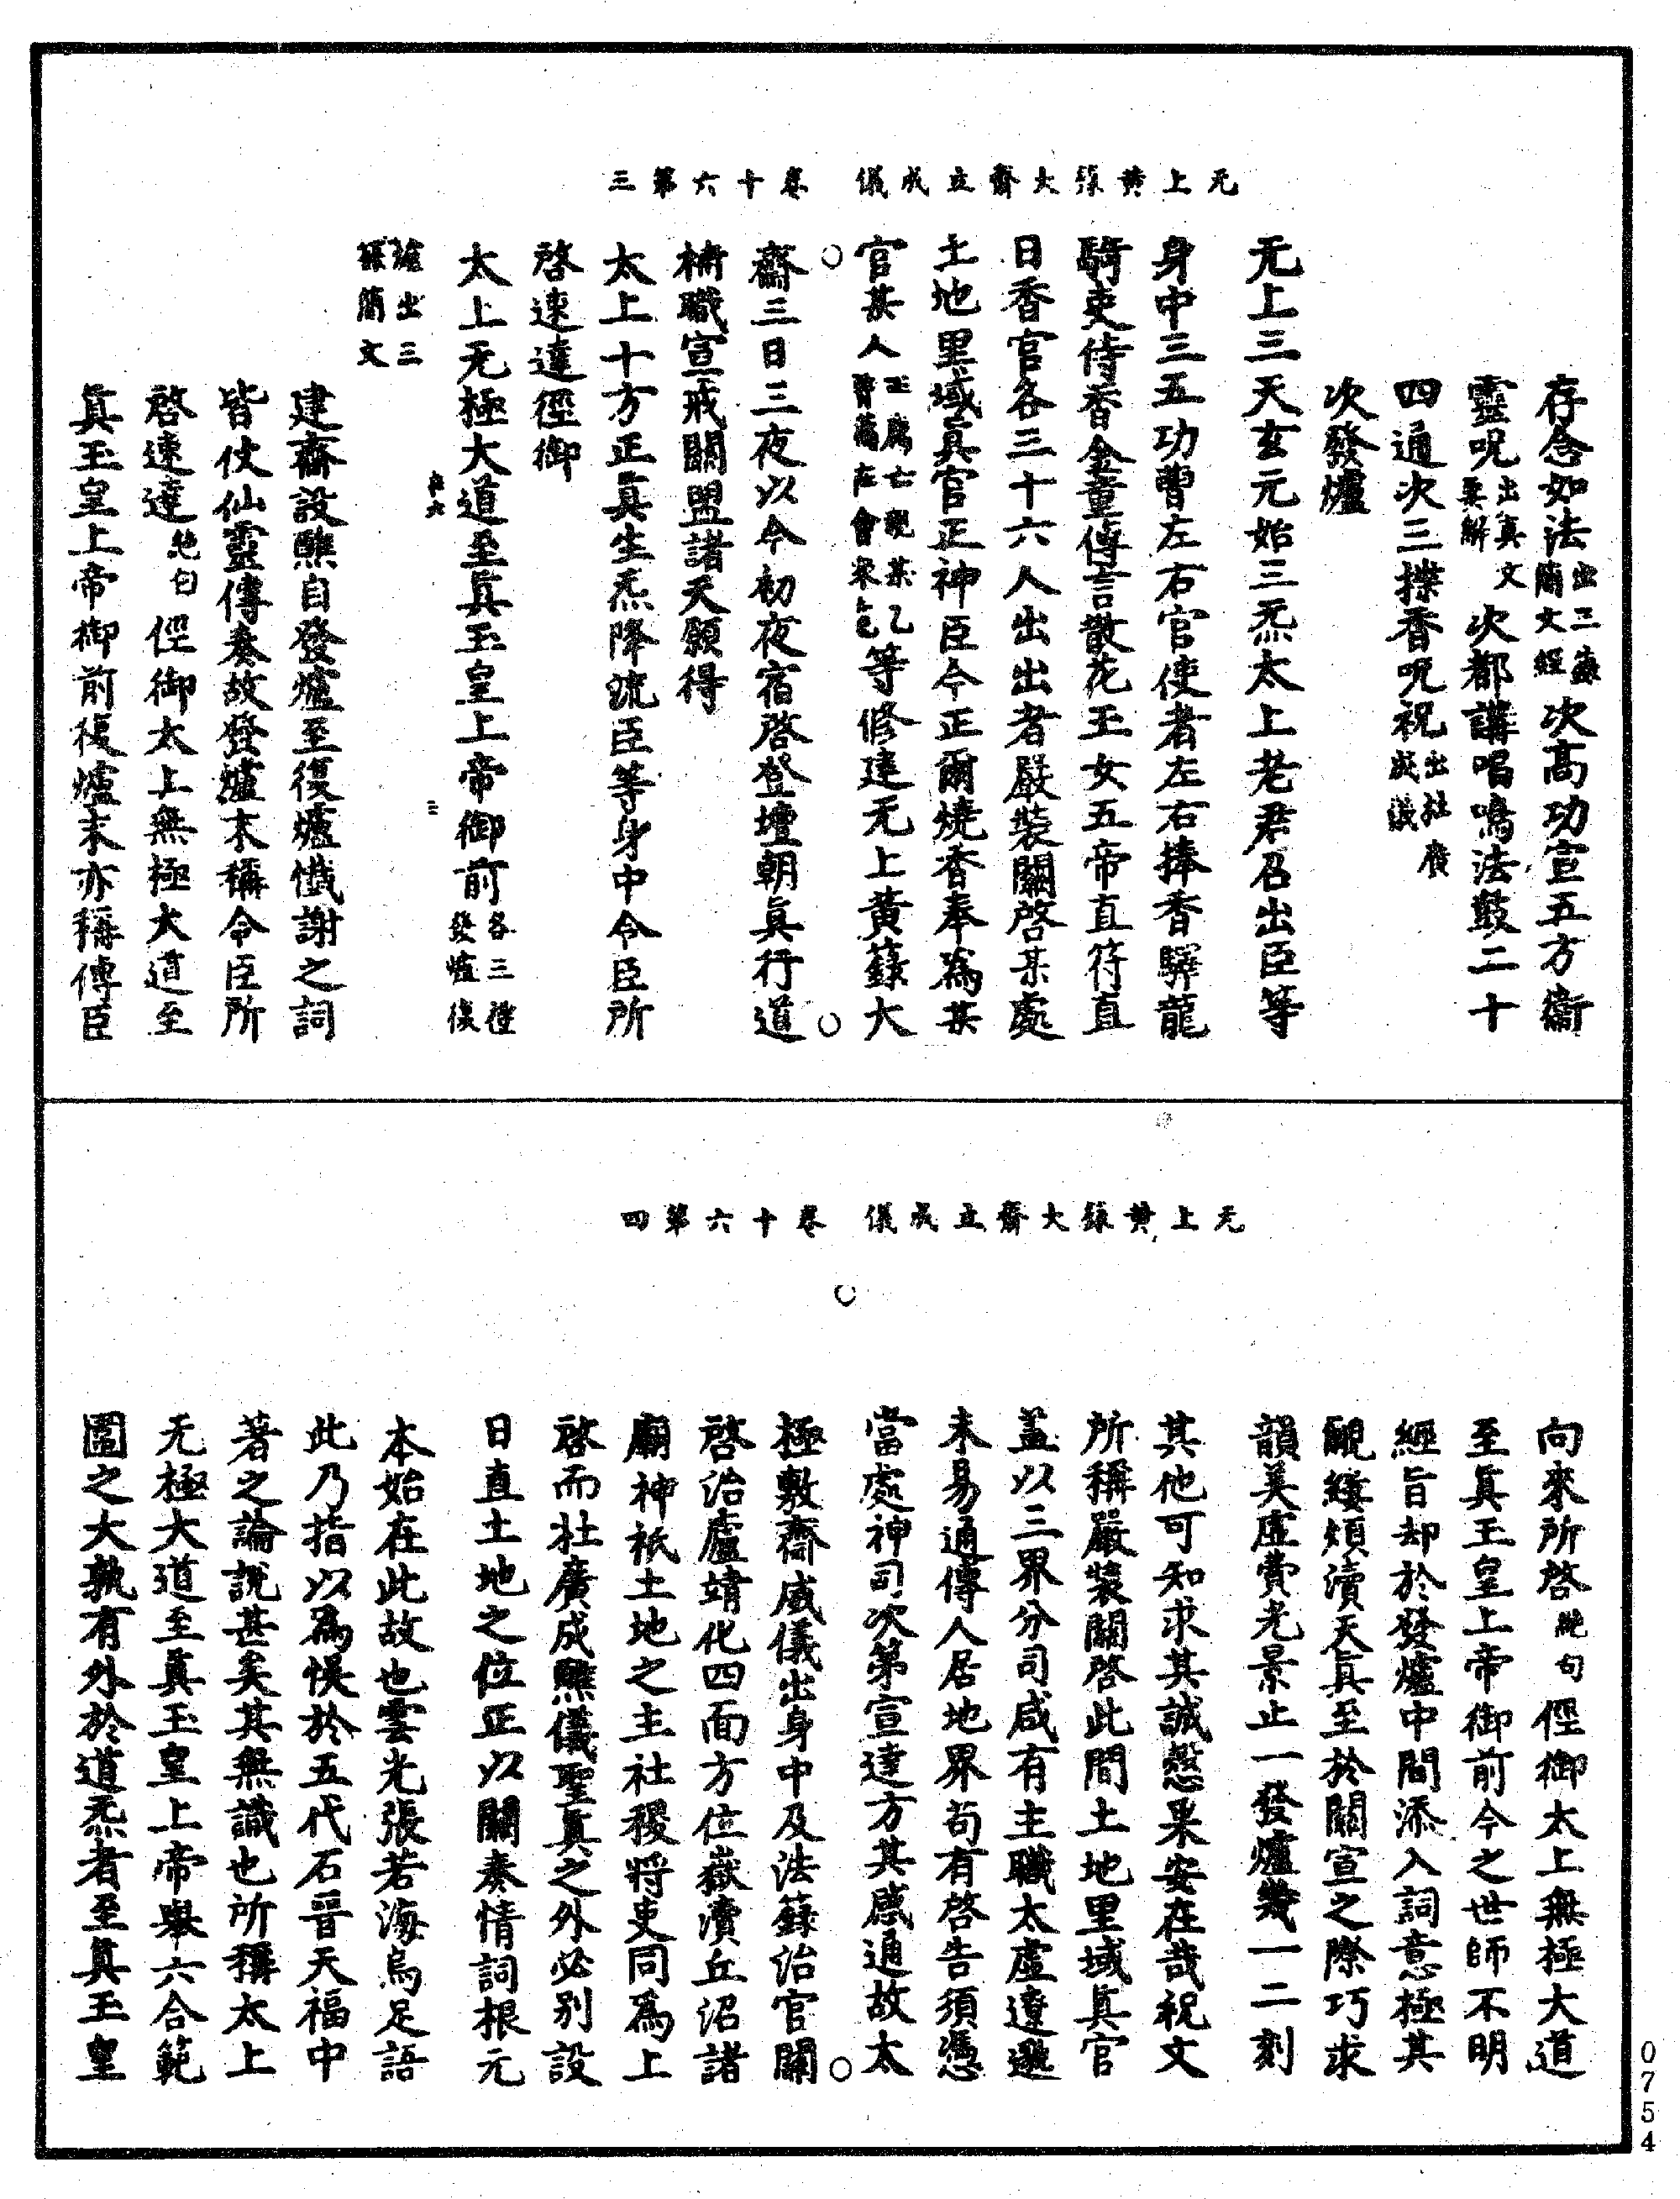 无上黃籙大齋立成儀　卷十六第三
存念如法出三籙簡文經次高功宣五方衞
靈呪出真文要解次都講唱鳴法鼓二十
四通次三捻香呪祝出杜廣成儀
次發爐
无上三天玄元始三炁太上老君召出臣等
身中三五功曹左右官使者左右捧香驛龍
騎吏侍香金童傳言散花玉女五帝直符直
日香官各三十六人出出者嚴裝關啓某處
土地里域真官正神臣今正爾燒香奉為某
官某人正薦亡靈某乙等修建无上黃籙大
齋三日三夜以今初夜宿啓登壇朝眞行道
補職宣戒關盟諸天願得
太上十方正眞生炁降流臣等身中令臣所
啓速達徑御
太上无極大道至眞玉皇上帝御前各三禮發爐復
爐出三籙簡文
建齋設醮自發爐至復爐懺謝之詞
皆仗仙靈傳奏故發爐末稱令臣所
啓速達絶句俓御太上無極大道至
眞玉皇上帝御前復爐末亦稱傳臣
无上黃籙大齋立成儀　卷十六第四
向來所啓絶句俓御太上無極大道
至眞玉皇上帝御前今之世師不明
經旨却於發爐中間添入詞意極其
覼縷煩瀆天真至於關宣之際巧求
韻美虛費光景止一發爐幾一二刻
其他可知求其誠慤果安在哉祝文
所稱嚴裝關啓此間土地里域真官
蓋以三界分司咸有主職太虛遼邈
未易通傳人居地界苟有啓告須憑
當處神司次第宣達方其感通故太
極敷齋威儀出身中及法籙治官關
啓治廬靖化四面方位嶽瀆丘沼諸
廟神祇土地之主社稷將吏同為上
啓而杜廣成醮儀聖真之外必別設
日直土地之位正以關奏情詞根元
本始在此故也雲光張若海烏足語
此乃指以為悞於五代石晉天福中
著之論說甚矣其無識也所稱太上
无極大道至眞玉皇上帝舉六合範
圍之大孰有外於道炁者至眞玉皇
0754